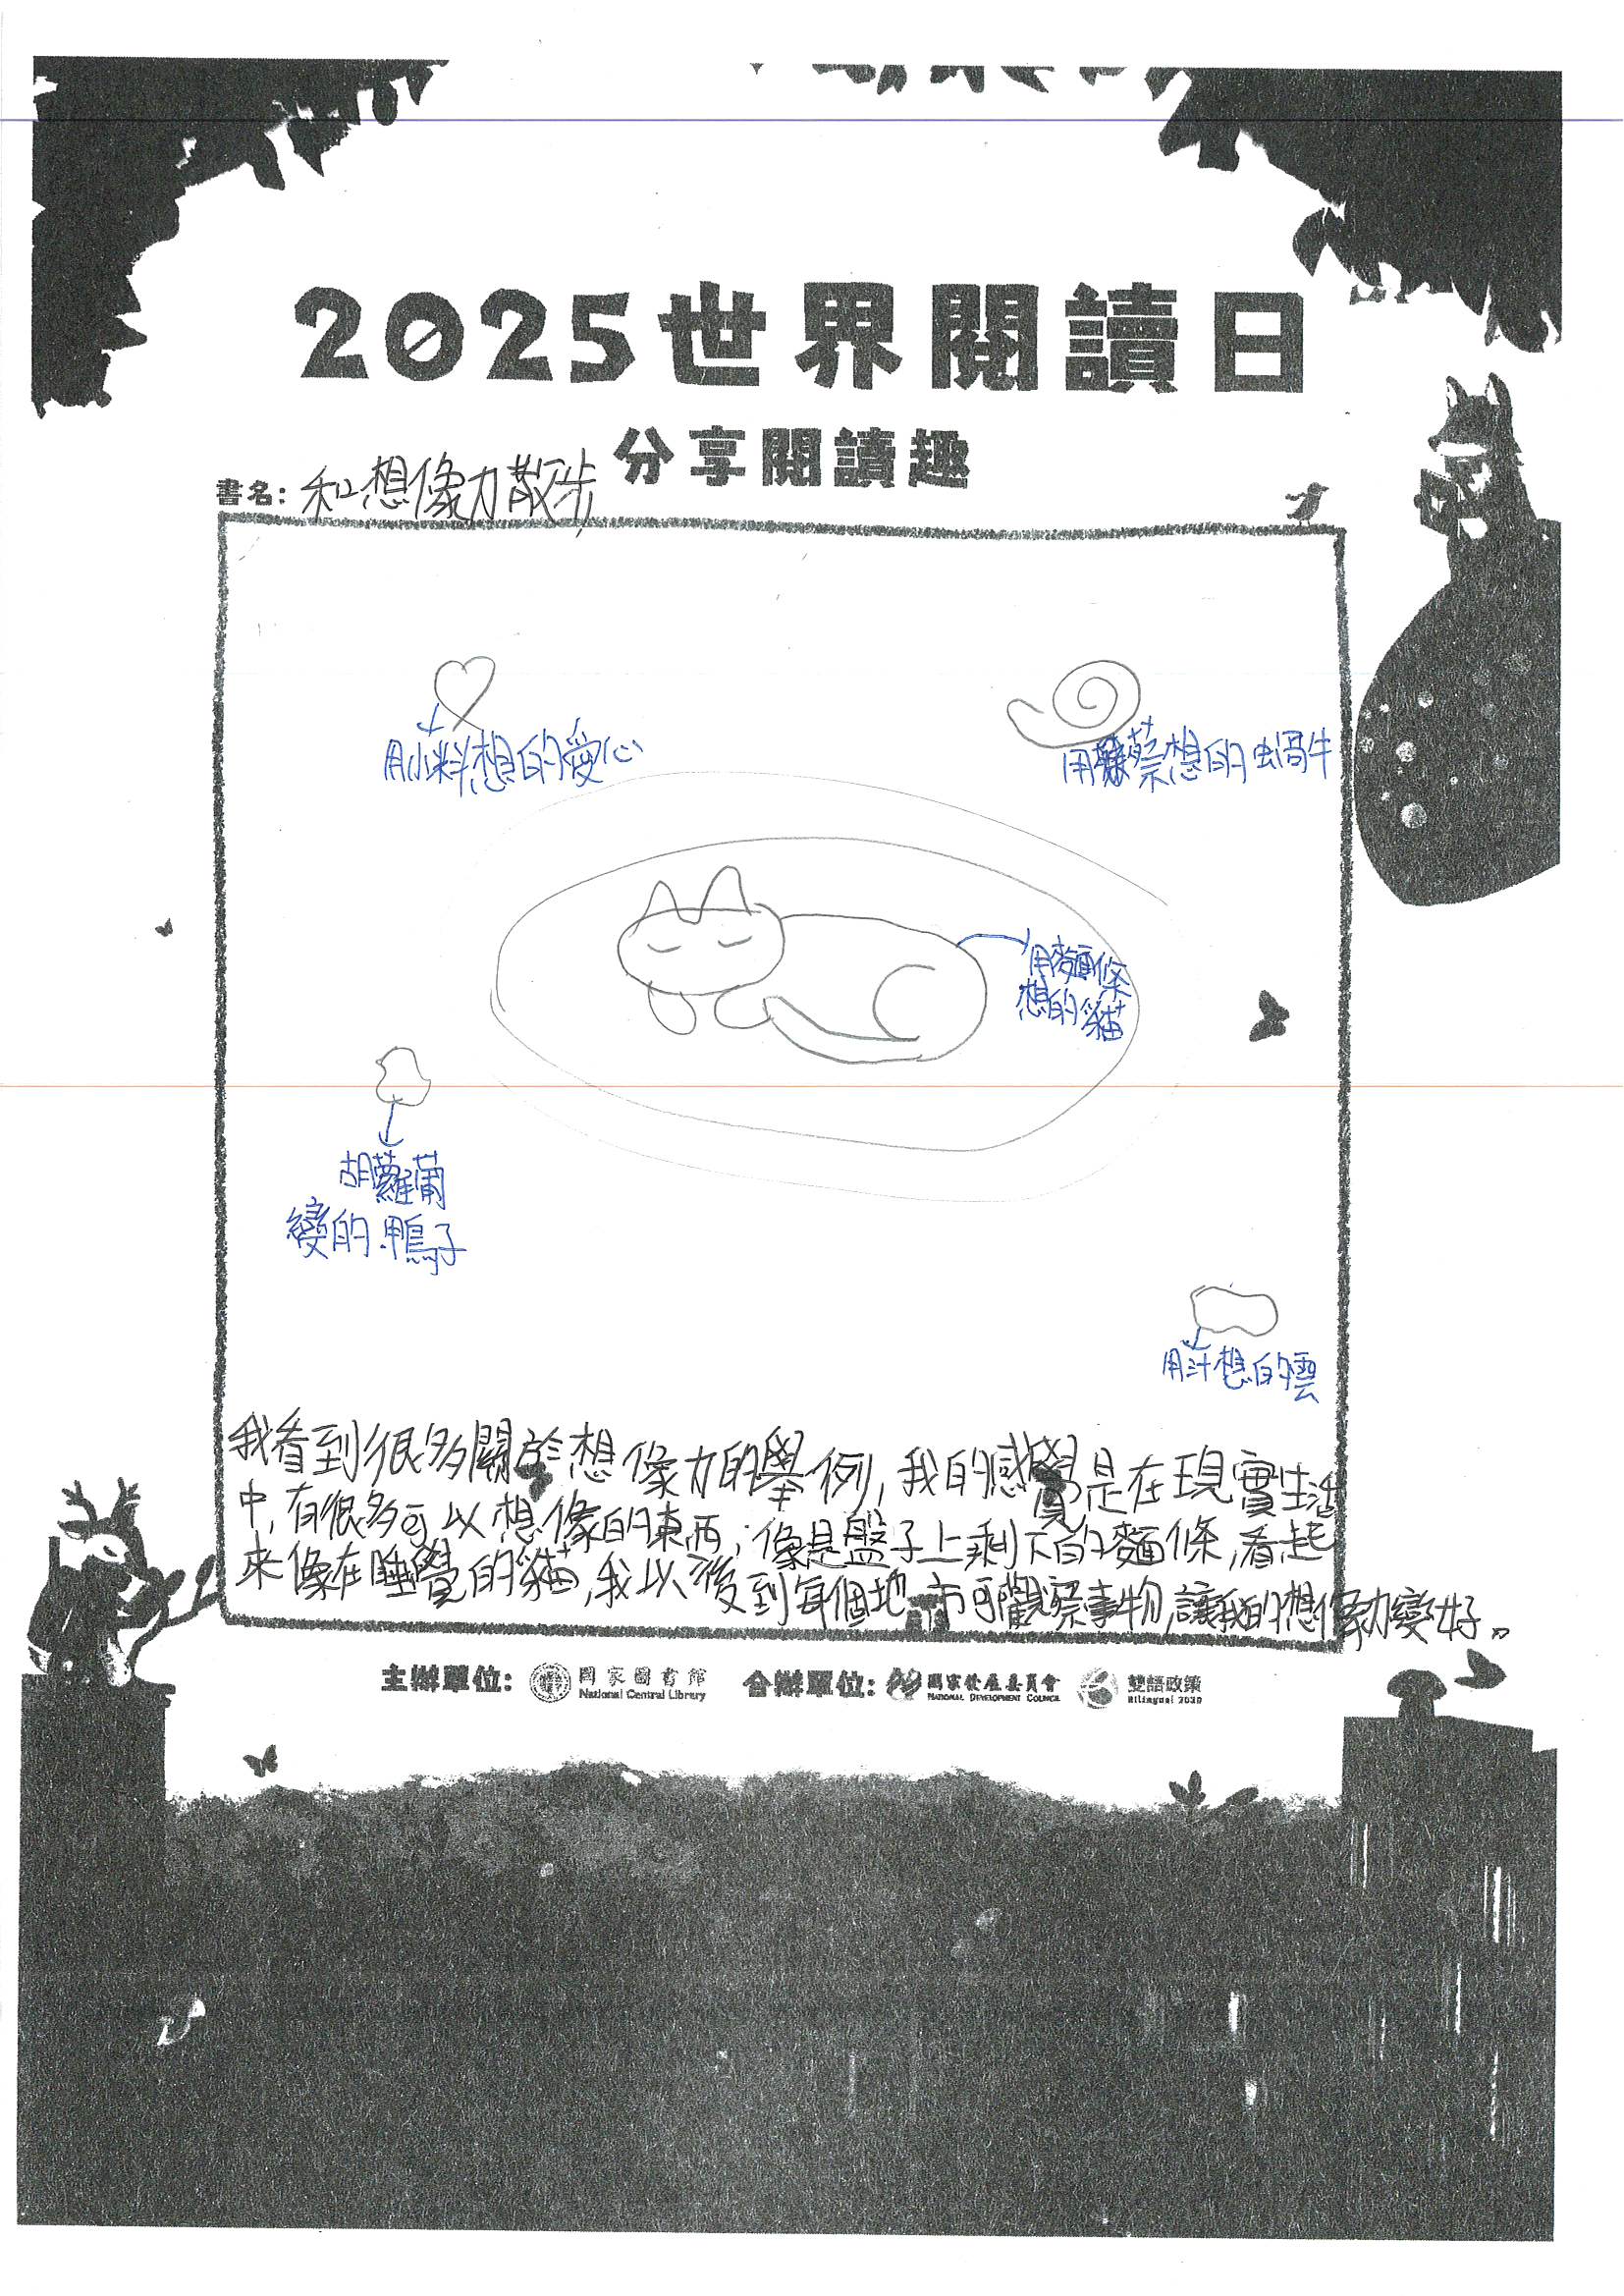 2025世界閱讀日
分享閱讀趣
書名：和想像力散步
用小料想的愛心
用蔴想的蝸牛
用麵條
想的貓
胡蘿蔔
變的鴨子
用汁想的雲
我看到很多關於想像力的舉例,我的感覺是在現實生活
中,有很多可以想像的東西;像是盤子上剩下的麵條,看起
來像在睡覺的貓,我以後到每個地市可觀察事物,讓我的想像力變好。
主辦單位：國家圖書館 National Central Library 合辦單位：國家發展委員會 NATIONAL DEVELOPMENT COUNCIL 雙語政策 Bilingual 2030